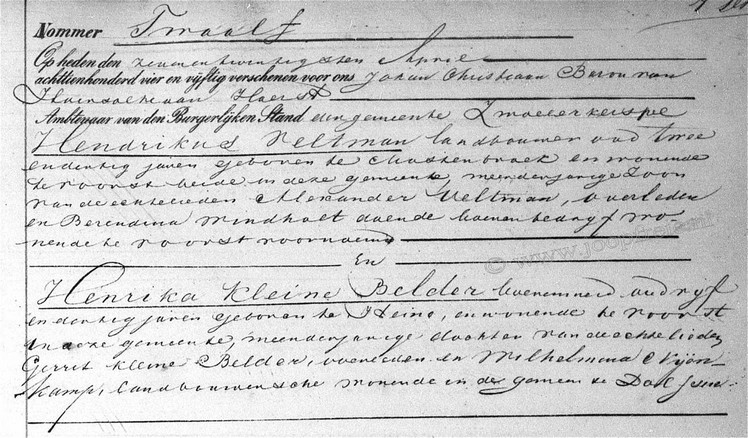 Nommer Twaalf
Op heden den zeven en twintigsten April
achttienhonderd vier en vijftig verschenen voor ons Johan Christiaan Baron van
Haersolte van Haerst
Ambtenaar van den Burgerlijken Stand der gemeente Zwollerkerspel
Hendrikus Veltman landbouwer oud twee
en dertig jaren geboren te en wonende
te voorst beide in deze gemeente, meerderjarige zoon
van de echtelieden Alexander Veltman, overleden
en Berendina Windholt doende boerenbedryf wo-
nende te voorst voornoemd
En
Henrika Kleine Belder boerenmeid oud vyf
en dertig jaren geboren te Heino, en wonende te voorst
in deze gemeente, meerderjarige dochter van de echtelieden
Gerrit Kleine Belder, overleden en Wilhelmina Nijen-
kamp, landbouwersche wonende in de gemeente Dalfsen
© www.joopfrei.nl